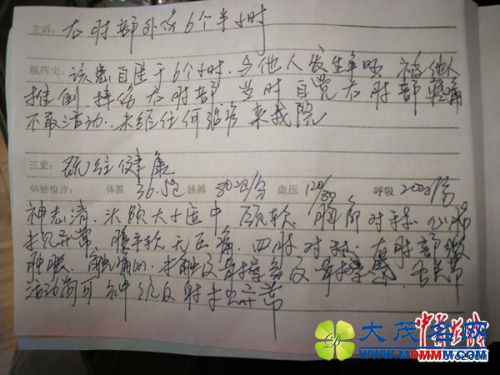 主诉：右肘部外伤6个半小时
现病史：该患自述于6个小时，与他人发生争吵 被他人
推倒，摔伤右肘部 当时自觉右肘部疼痛
不敢活动，未经任何治疗 来我院
三史：既往健康
体格检查： 体温 36.5℃ 脉搏 80次/分 血压 120/80 呼吸 20次/分
神志清，头颅大小正中 颈软 胸部对称，心肺
未见异常，腹平软无压痛，四肢对称，右肘部
肿胀，未触及骨擦音及骨擦感，各关节
活动尚可 神经反射未见异常
大茂名网
www.MDMMM.com